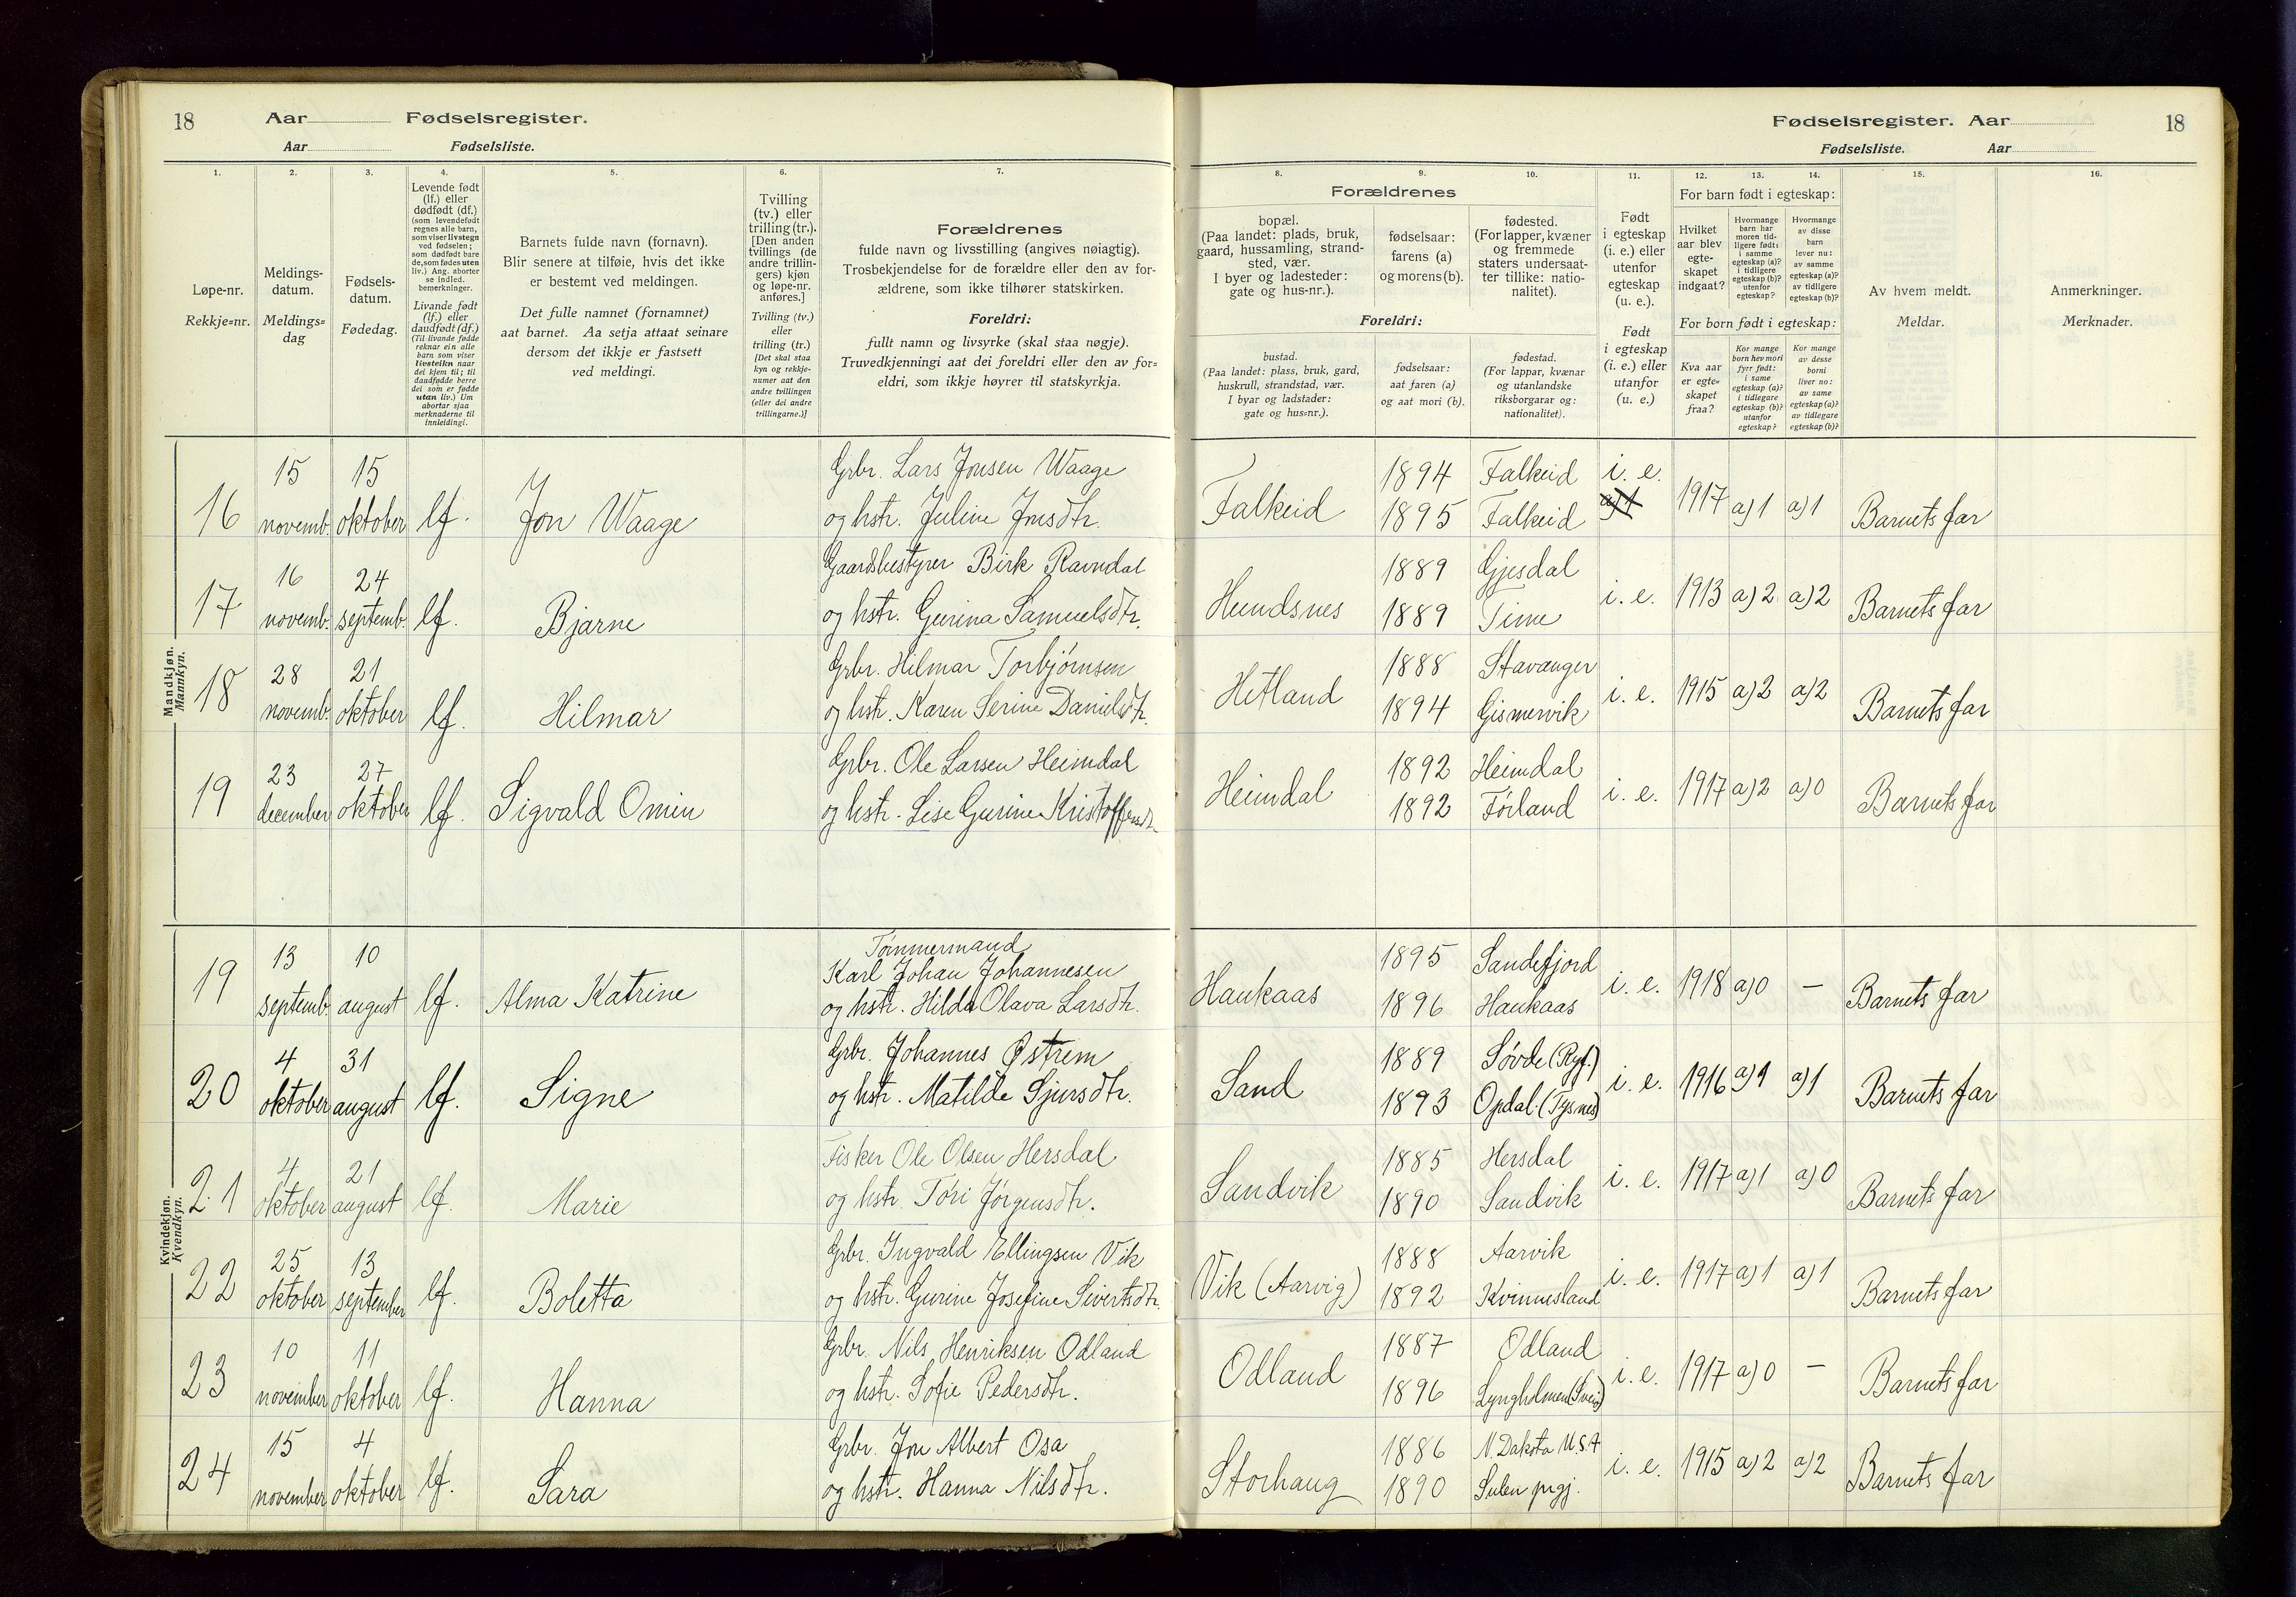 18
Aar
Fødselsregister.
Aar
Fødselsliste.
Fødselsregister. Aar
18
Fødselsliste.
Aar
1.
2.
3.
4.
5.
6.
7.
8.
9.
10.
11.
12.
13.
14.
15.
16.
Løpe-nr.
Rekkje=nr.
Meldings-
datum.
Meldings=
dag
Fødsels-
datum.
Fødedag.
Levende født
(lf.) eller
dødfødt (df.)
(som levendefødt
regnes alle barn,
som viser livstegn
ved fødselen;
som dødfødt bare
de, som fødes uten
liv.) Ang. aborter
se indled.
bemerkninger.
Livande født
(lf.) eller
daudfødt (df.)
(Til livande fødde
reknar ein alle
barn som viser
livsteikn naar
dei kjem til; til
daudfødde berre
dei som er fødde
utan liv.) Um
abortar sjaa
merknaderne til
innleidingi.
Barnets fulde navn (fornavn).
Blir senere at tilføie, hvis det ikke
er bestemt ved meldingen.
Det fulle namnet (fornamnet)
aat barnet. Aa setja attaat seinare
dersom det ikkje er fastsett
ved meldingi.
Tvilling
(tv.) eller
trilling (tr.).
[Den anden
tvillings (de
andre trillin-
gers) kjøn
og løpe-nr.
anføres.]
Tvilling (tv.)
eller
trilling (tr.)
[Det skal staa
kyn og rekkje-
numer aat den
andre tvillingen
(eller dei andre
trillingarne.)]
Forældrenes
fulde navn og livsstilling (angives nøiagtig).
Trosbekjendelse for de forældre eller den av for-
ældrene, som ikke tilhører statskirken.
Foreldri:
fullt namn og livsyrke (skal staa nøgje).
Truvedkjenningi aat dei foreldri eller den av for=
eldri, som ikkje høyrer til statskyrkja.
Forældrenes
bopæl.
(Paa landet: plads, bruk,
gaard, hussamling, strand-
sted, vær.
I byer og ladesteder:
gate og hus-nr.).
fødselsaar:
farens (a)
og morens (b).
fødested.
(For lapper, kvæner
og fremmede
staters undersaat-
ter tillike: natio-
nalitet).
Foreldri:
bustad.
(Paa landet: plass, bruk, gard,
huskrull, strandstad, vær.
I byar og ladstader:
gate og hus=nr.).
fødselsaar:
aat faren (a)
og aat mori (b).
fødestad.
(For lappar, kvænar
og utanlandske
riksborgarar og:
nationalitet).
Født
i egteskap
(i. e.) eller
utenfor
egteskap
(u. e.).
Født
i egteskap
(i. e.) eller
utanfor
(u. e.)
For barn født i egteskap:
Hvilket
aar blev
egte-
skapet
indgaat?
Hvormange
barn har
moren tid-
ligere født:
i samme
egteskap (a)?
i tidligere
egteskap (b)?
utenfor
egteskap?
Hvormange
av disse
barn
lever nu:
av samme
egteskap (a)?
av tidligere
egteskap (b)?
For born født i egteskap:
Kva aar
er egte=
skapet
fraa?
Kor mange
born hev mori
fyrr født:
i same
egteskap (a)?
i tidlegare
egteskap (b)?
utanfor
egteskap?
Kor mange
av desse
borni
liver no:
av same
egteskap (a)?
av tidlegare
egteskap (b)?
Av hvem meldt.
Meldar.
Anmerkninger.
Merknader.
Mandkjøn.
Mannkyn.
16 15 novemb. 15 oktober lf. Jon Waage
Grbr. Lars Jonsen Waage
og hstr. Juline Jonsdtr.
Falkeid 1894 Falkeid i. e. 1917 a)1 a)1 Barnets far
1895 Falkeid a)1
17 16 novemb. 24 septemb. lf. Bjarne
Gaardsbestyrer Birk Ravndal
og hstr. Gurina Samuelsdtr.
Hundsnes 1889 Gjesdal i. e. 1913 a)2 a)2 Barnets far
1889 Time
18 28 novemb. 21 oktober lf. Hilmar
Grbr. Hilmar Torbjörnsen
og hstr. Karen Serine Danielsdtr.
Hetland 1888 Stavanger i. e. 1915 a)2 a)2 Barnets far
1894 Gismervik
19 23 december 27 oktober lf. Sigvald Omin
Grbr. Ole Larsen Heimdal
og hstr. Lise Gurine Kristoffersdtr.
Heimdal 1892 Heimdal i. e. 1917 a)2 a)0 Barnets far
1892 Förland
Kvindekjøn.
Kvendkyn.
19 13 septemb. 10 august lf. Alma Katrine
Tömmermand
Karl Johan Johannesen
og hstr. Hilda Olava Larsdtr.
Haukaas 1895 Sandefjord i. e. 1918 a)0 – Barnets far
1896 Haukaas
20 4 oktober 31 august lf. Signe
Grbr. Johannes Østrem
og hstr. Matilde Sjursdtr.
Sand 1889 Søvde (Ryf.) i. e. 1916 a)1 a)1 Barnets far
1893 Opdal (Tysnes)
21 4 oktober 21 august lf. Marie
Fisker Ole Olsen Hersdal
og hstr. Töri Jörgensdtr.
Sandvik 1885 Hersdal i. e. 1917 a)1 a)0 Barnets far
1890 Sandvik
22 25 oktober 13 september lf. Boletta
Grbr. Ingvald Ellingsen Vik
og hstr. Gurine Josefine Sivertsdtr.
Vik (Aarvig) 1888 Aarvik i. e. 1917 a)1 a)1 Barnets far
1892 Kvinnesland
23 10 november 11 oktober lf. Hanna
Grbr. Nils Henriksen Odland
og hstr. Sofie Pedersdtr.
Odland 1887 Odland i. e. 1917 a)0 – Barnets far
1896 Lyngholmen (Sveio)
24 15 november 4 oktober lf. Sara
Grbr. Jon Albert Osa
og hstr. Hanna Nilsdtr.
Storhaug 1886 N. Dakota U.S.A i. e. 1915 a)2 a)2 Barnets far
1890 Sulen prgj.